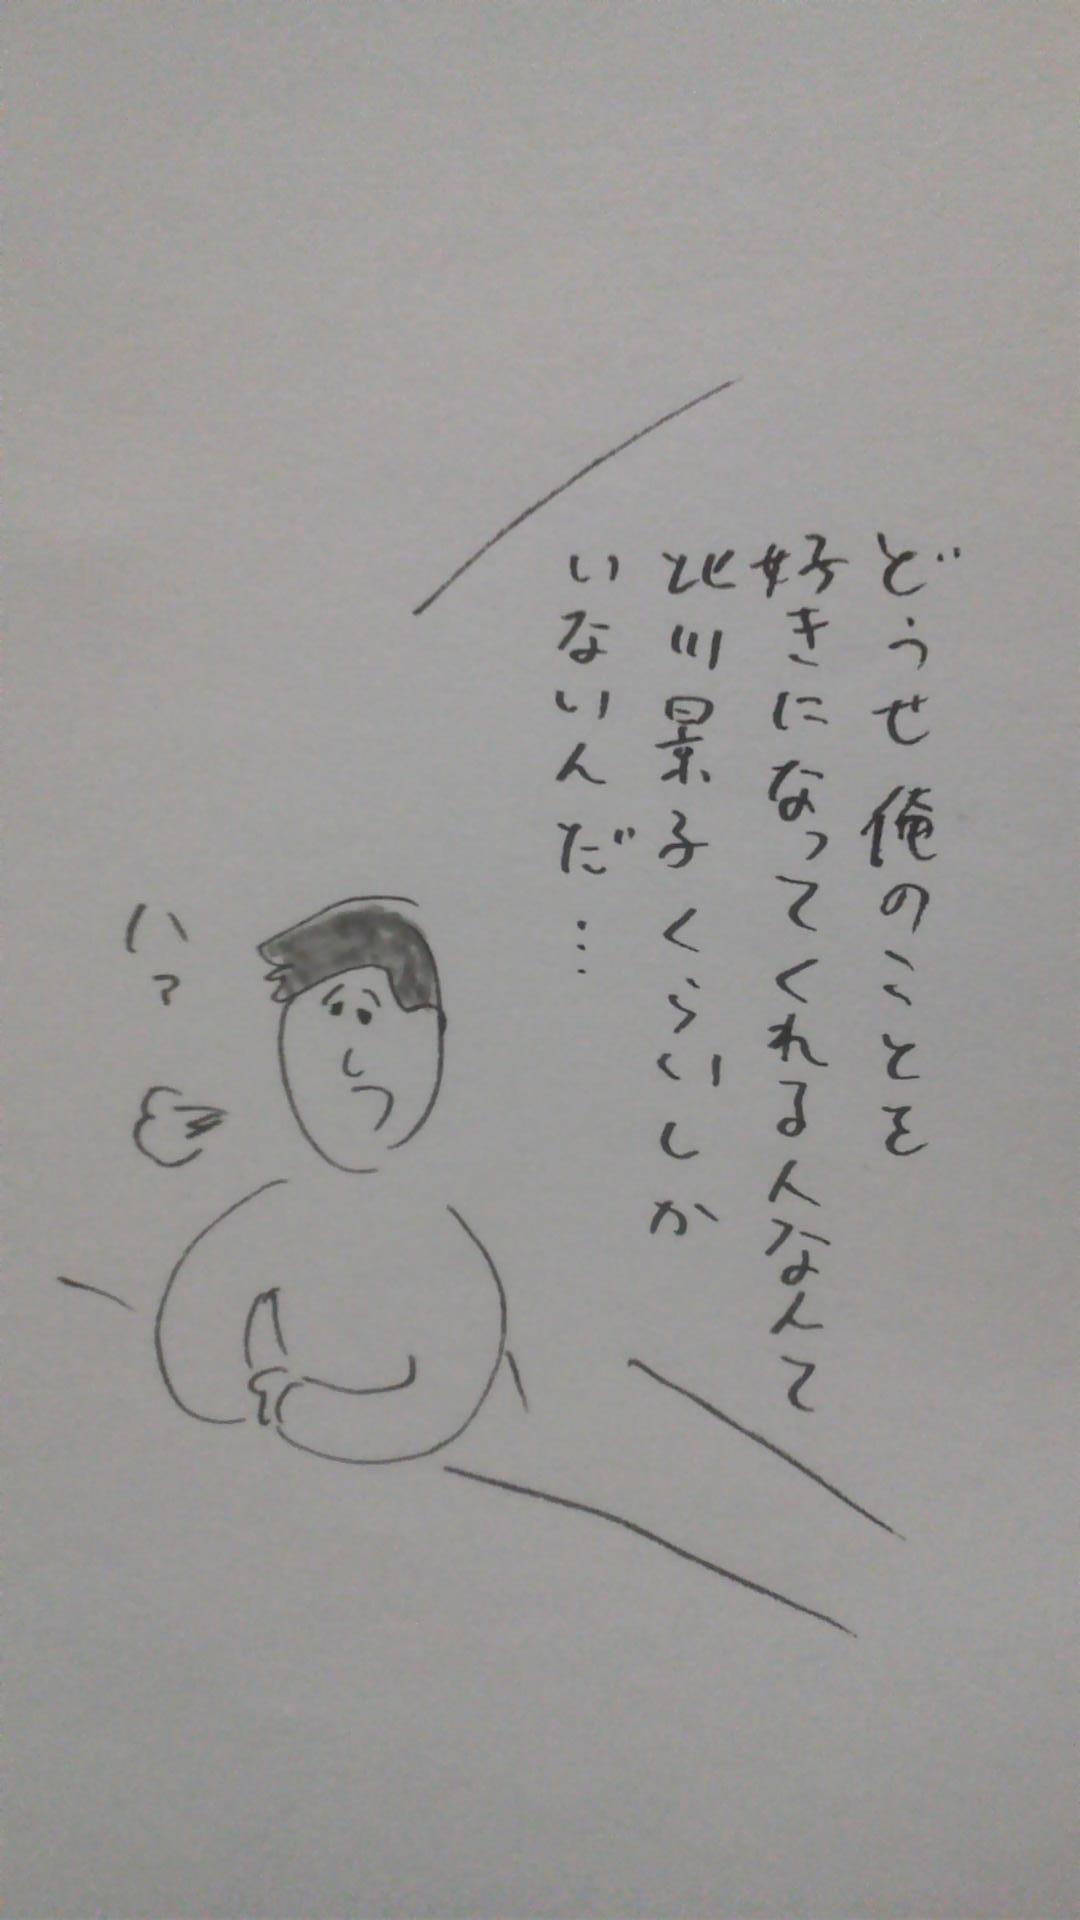 どうせ俺のことを
好きになってくれる人なんて
北川景子くらいしか
いないんだ…
ハァ